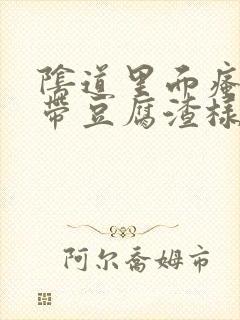 陰道里面瘙
帶豆腐渣樣
阿尔喬姆市